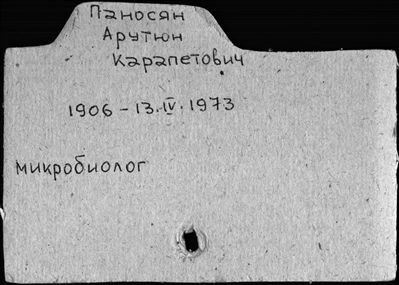 Паносян
Арутюн
Карапетович
1906 – 13.IV.1973
микробиолог